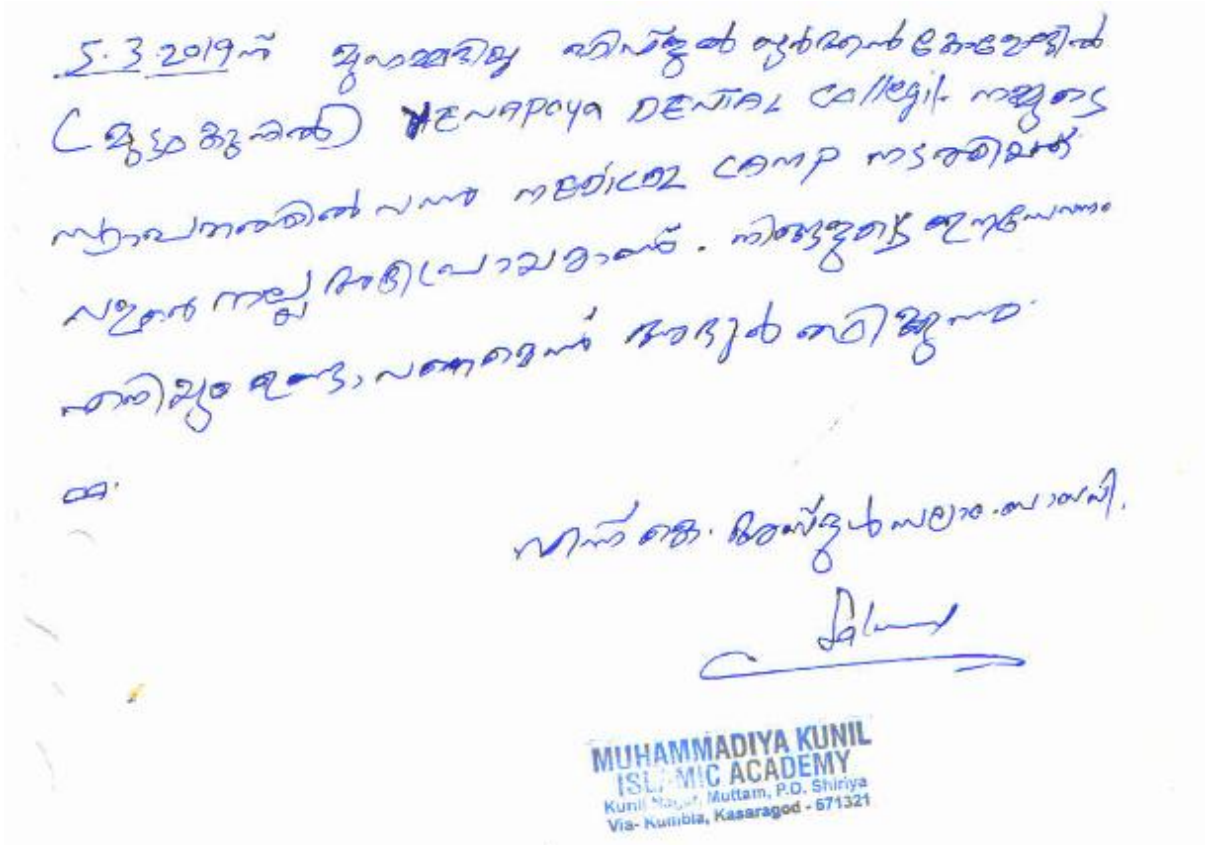 5.3.2019ന് മുഹമ്മദിയ്യ ഹിഫ്ളുൽ ഖുർആൻ കോളേജിൽ
(മുട്ടം കുനിൽ) YENAPOYA DENTAL Collegil നമ്മുടെ
സ്ഥാപനത്തിൽ വന്ന മെDICAL CAMP നടത്തിയത്
വളരെ നല്ല അഭിപ്രായമാണ്. നിങ്ങളുടെ ഈ സേവനം
ഇനിയും ഉണ്ടാവണമെന്ന്
എന്ന് കെ. അബ്ദുൾ സലാം
Salam
MUHAMMADIYA KUNIL
ISLAMIC ACADEMY
Kunil Nagar, Muttam, P.O. Shiriya
Via- Kumbla, Kasaragod - 671321